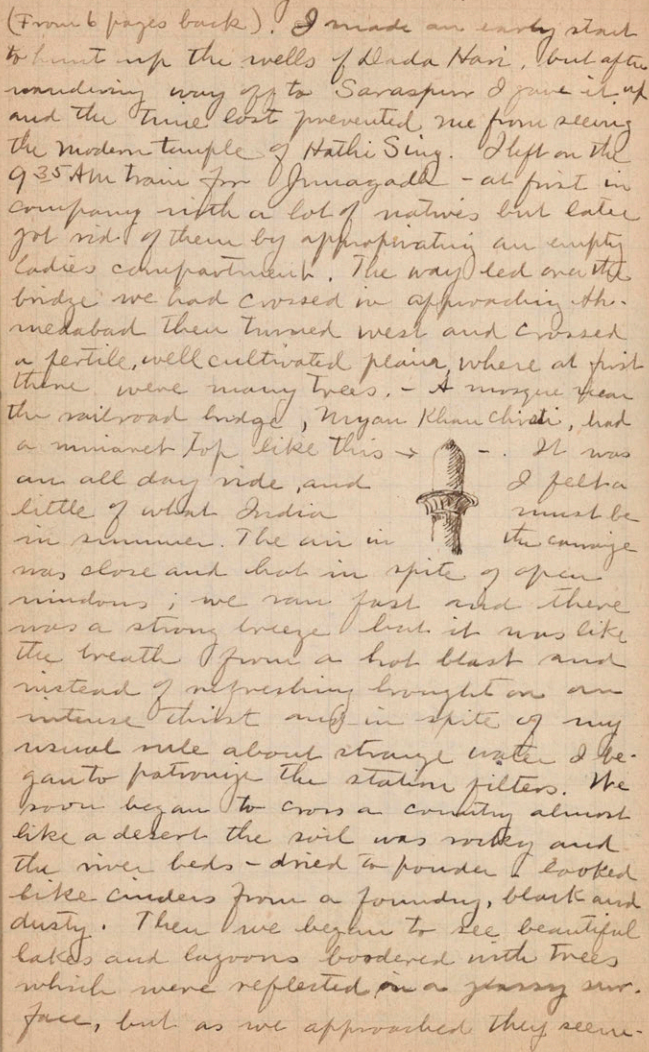 (From 6 pages back). I made an early start
to hunt up the wells of Dada Hari, but after
wandering way off to Saraspur I gave it up
and the time lost prevented me from seeing
the modern temple of Hathi Sing. I left on the
9 35 AM train for Junagadh - at first in
company with a lot of natives but later
got rid of them by appropriating an empty
ladies compartment. The way led over the
bridge we had crossed in approaching Ah-
medabad then turned west and crossed
a fertile, well cultivated plain, where at first
there were many trees. - A mosque near
the railroad bridge, Miyan Khan Chisti, had
a minaret top like this → - . It was
an all day ride, and I felt a
little of what India must be
in summer. The air in the carriage
was close and hot in spite of open
windows; we ran fast and there
was a strong breeze but it was like
the breath from a hot blast and
instead of refreshing brought on an
intense thirst and in spite of my
usual rule about strange water I be-
gan to patronize the station filters. We
soon began to cross a country almost
like a desert the soil was rocky and
the river beds - dried to powder - looked
like cinders from a foundry, black and
dusty. Then we began to see beautiful
lakes and lagoons boordered with trees
which were reflected in a glassy sur-
face, but as we approached they seem-